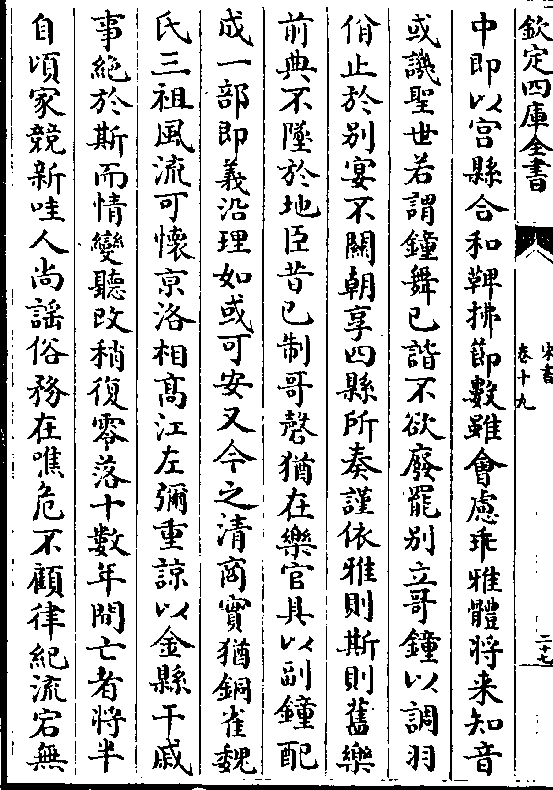 欽定四庫全書
宋書
卷十九
二十七
中即以宫縣合和鞞拂節數雖㑹慮乖雅體將来知音
或譏聖世若謂鐘舞已諧不欲廢罷别立哥鐘以調羽
佾止於别宴不關朝享四縣所奏謹依雅則斯則舊樂
前典不墜於地臣昔已制哥磬猶在樂官具以副鐘配
成一部即義沿理如或可安又今之清商實猶銅雀魏
氏三祖風流可懷京洛相髙江左彌重諒以金縣干戚
事絶於斯而情變聽改稍復零落十數年間亡者將半
自頃家競新哇人尚謡俗務在噍危不顧律紀流宕無